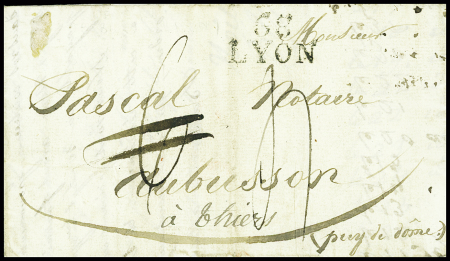 68
LYON
Monsieur
Pascal Notaire
Aubusson
à thiers
(puy de dôme.)